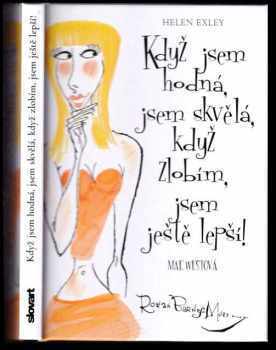 Když jsem hodná, jsem skvělá, když zlobím, jsem ještě lepší!
slovart
HELEN EXLEY
Když jsem
hodná,
jsem skvělá,
když
zlobím,
jsem
ještě lepší!
MAE WESTOVÁ